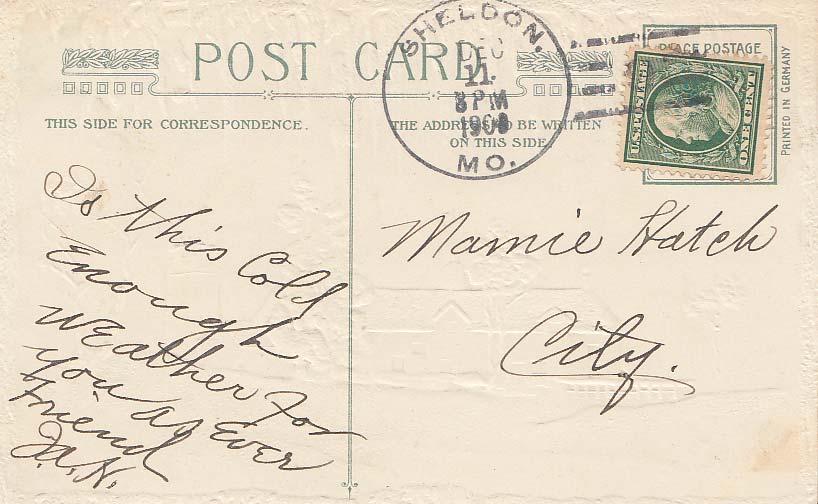 POST CARD
THIS SIDE FOR CORRESPONDENCE.
THE ADDRESS TO BE WRITTEN
ON THIS SIDE
SHELDON,
DEC
11
8 PM
MO.
PLACE POSTAGE
U.S. POSTAGE
ONE CENT
PRINTED IN GERMANY
Is this Cold
Enough
Weather For
you as Ever
Friend
Mamie Hatch
City.